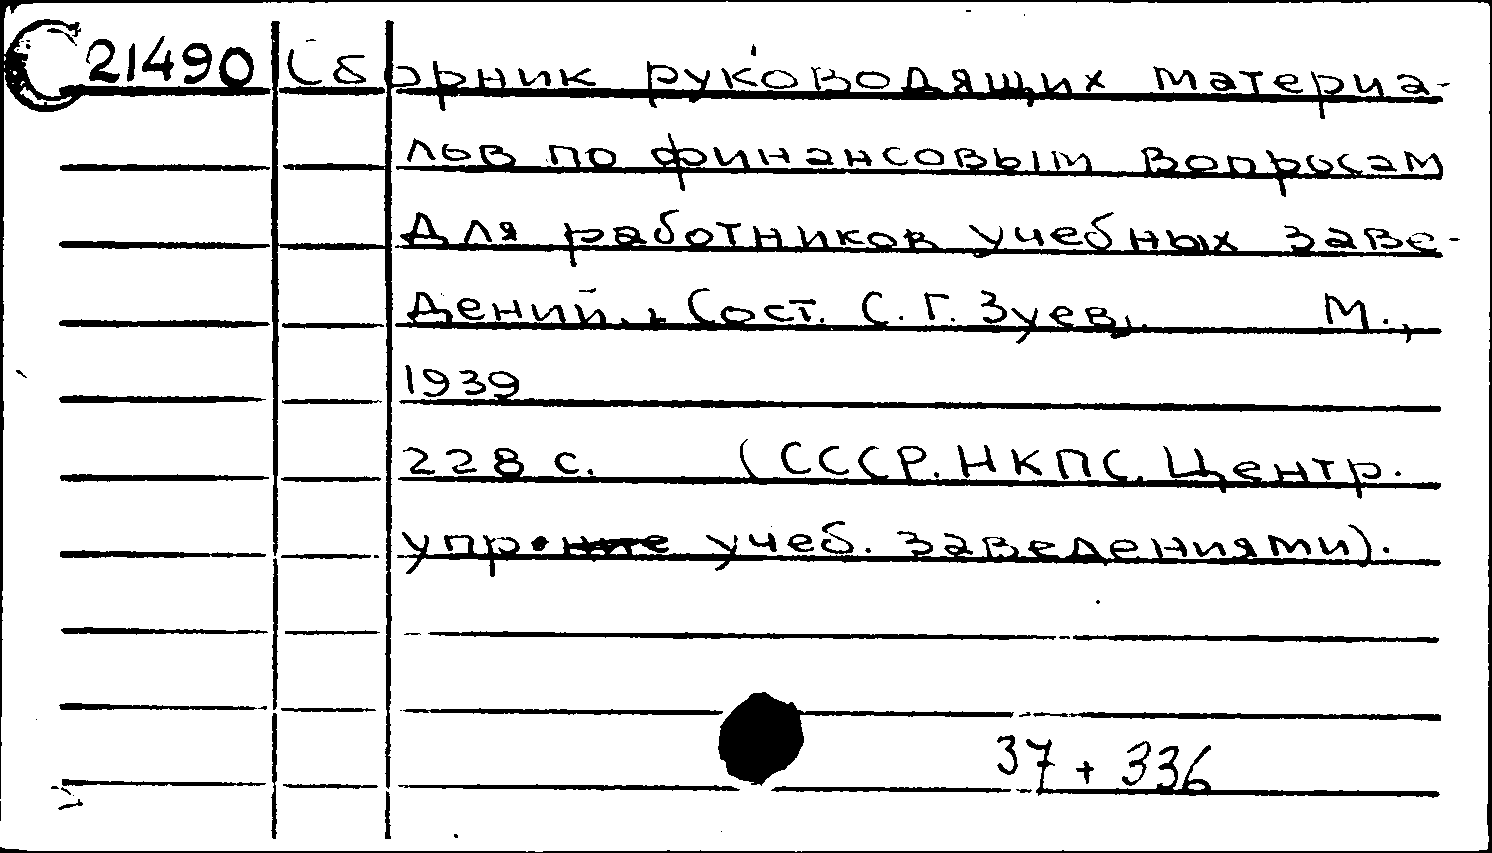 C21490 Сборник руководящих материа-
лов по финансовым вопросам
для работников учебных заве-
дений. Сост. С. Г. Зуев. М.,
1939
228 с. (СССР. НКПС. Центр.
упр. учеб. заведениями).
37 + 336